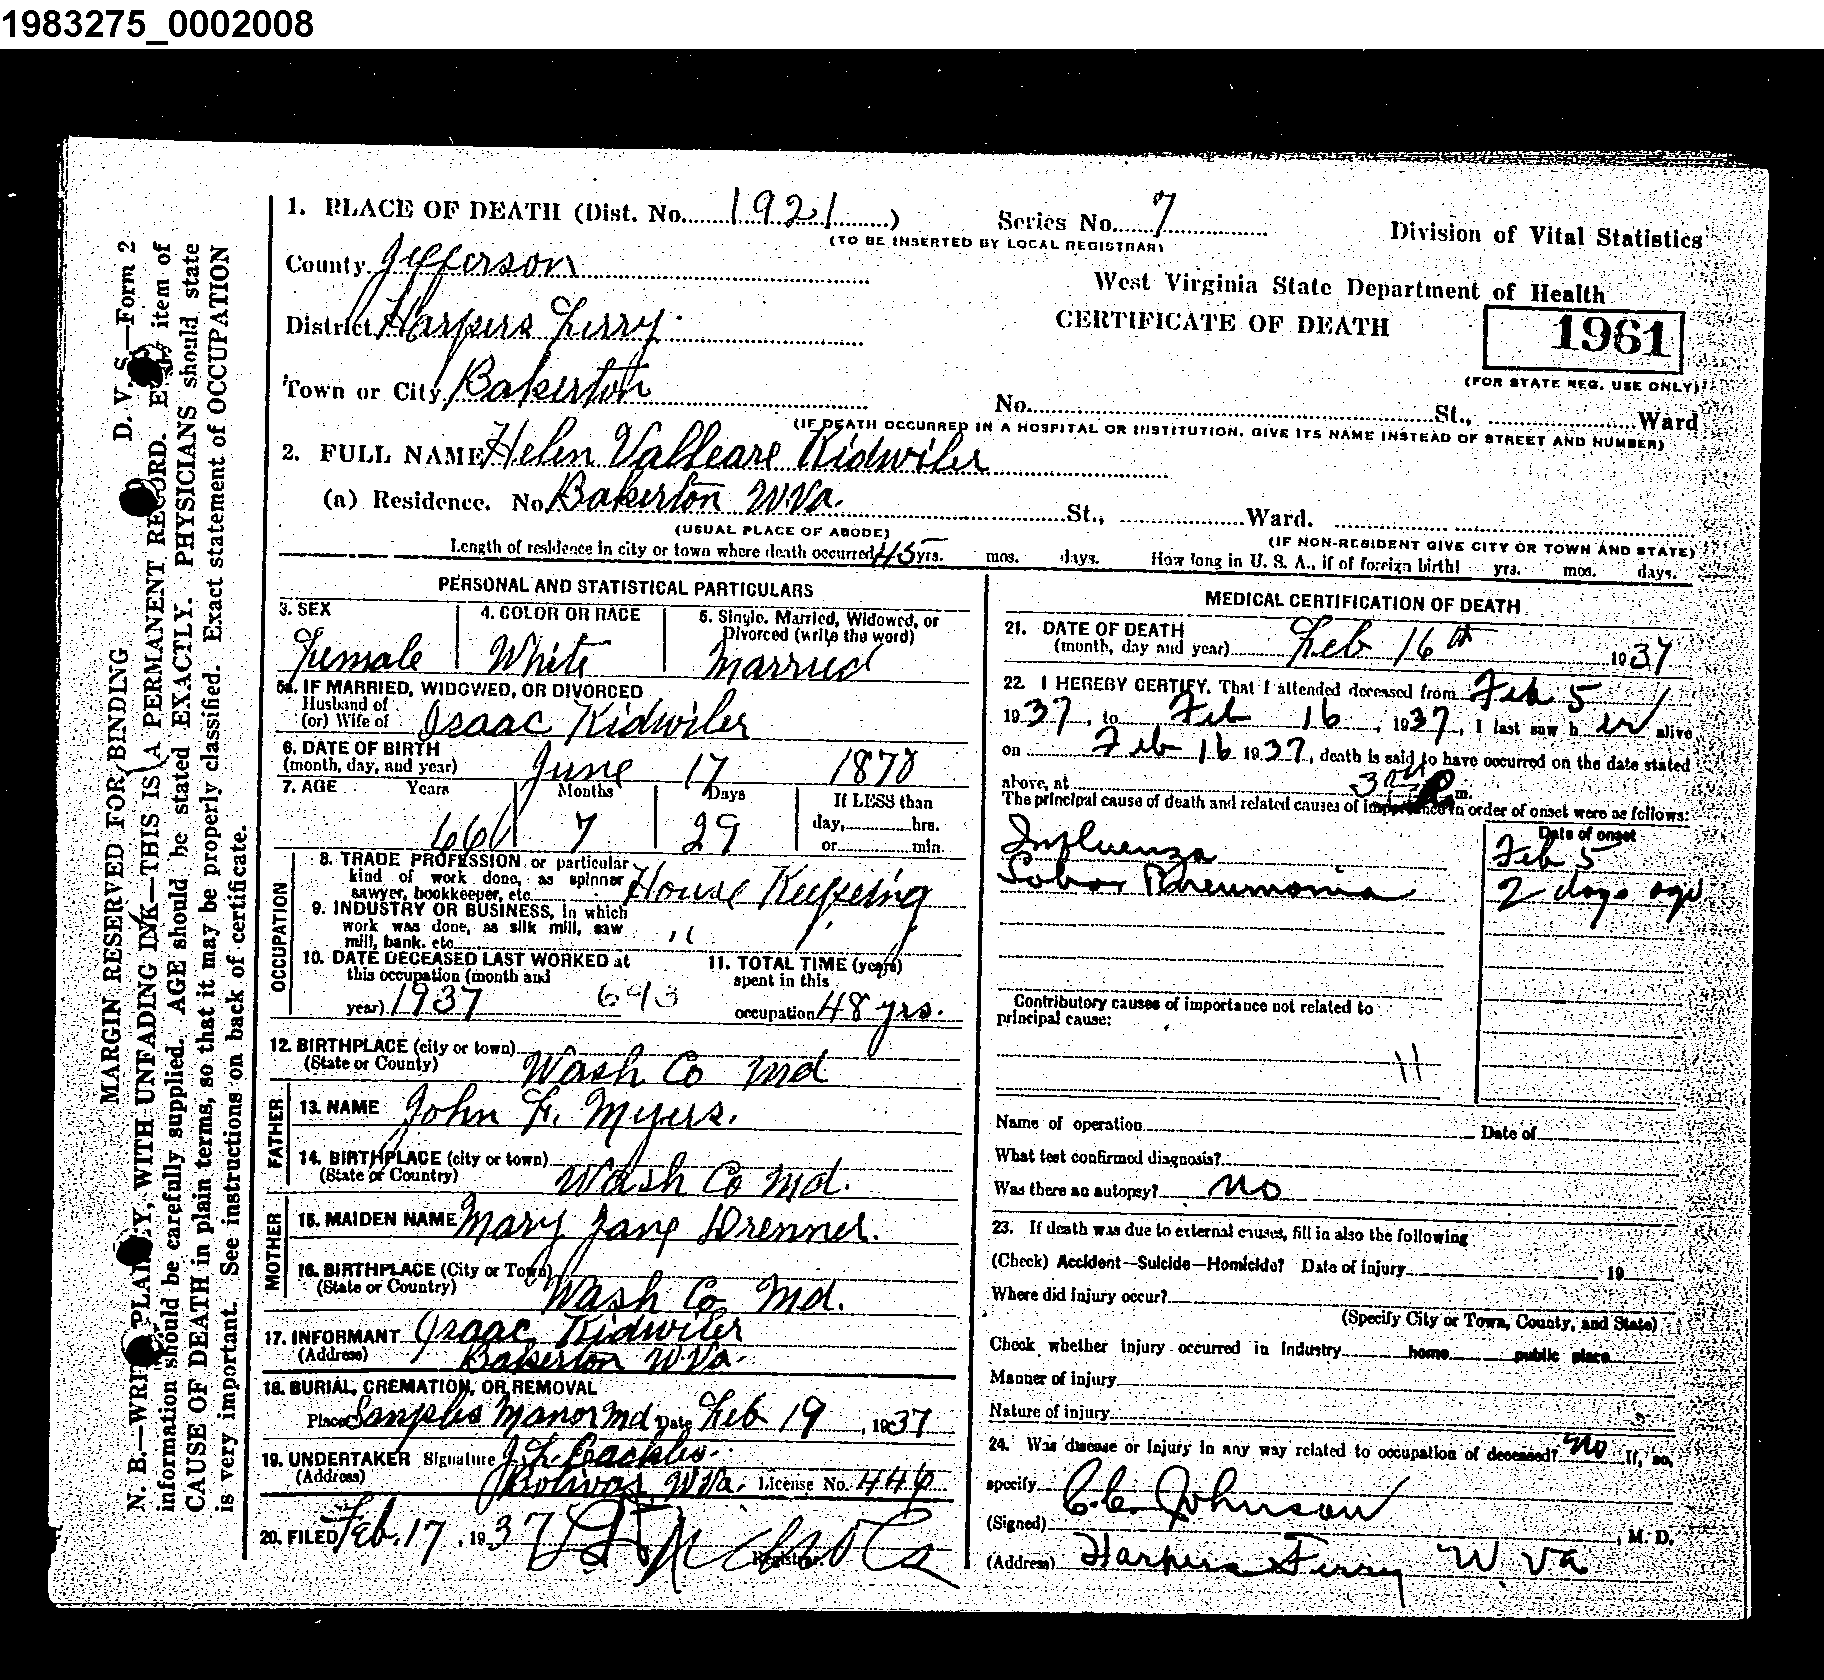 1983275_0002008
1. PLACE OF DEATH (Dist. No. 1921)
Series No. 7
(TO BE INSERTED BY LOCAL REGISTRAR)
Division of Vital Statistics
County Jefferson
West Virginia State Department of Health
District Harpers Ferry
CERTIFICATE OF DEATH
1961
(FOR STATE REG. USE ONLY)
Town or City Bakerton
No. St., Ward
(IF DEATH OCCURRED IN A HOSPITAL OR INSTITUTION, GIVE ITS NAME INSTEAD OF STREET AND NUMBER)
2. FULL NAME Helen Kidwiler
(a) Residence. No. Bakerton W.Va. St., Ward.
(USUAL PLACE OF ABODE)
(IF NON-RESIDENT GIVE CITY OR TOWN AND STATE)
Length of residence in city or town where death occurred 45 yrs. mos. days. How long in U. S. A., if of foreign birth? yrs. mos. days.
PERSONAL AND STATISTICAL PARTICULARS
3. SEX
Female
4. COLOR OR RACE
White
5. Single, Married, Widowed, or
Divorced (write the word)
Married
5a. IF MARRIED, WIDOWED, OR DIVORCED
Husband of
(or) Wife of Isaac Kidwiler
6. DATE OF BIRTH
(month, day, and year) June 17
7. AGE Years Months Days If LESS than
66 7 29
day, hrs.
or min.
OCCUPATION
8. TRADE PROFESSION or particular
kind of work done, as spinner
sawyer, bookkeeper, etc. House Keepeing
9. INDUSTRY OR BUSINESS, in which
work was done, as silk mill, saw
mill, bank, etc. "
10. DATE DECEASED LAST WORKED at
this occupation (month and
year) 1937 693
11. TOTAL TIME (years)
spent in this
occupation 48 yrs.
12. BIRTHPLACE (city or town)
(State or County) Wash Co Md
FATHER
13. NAME John F. Myers.
14. BIRTHPLACE (city or town)
(State or Country) Wash Co Md.
MOTHER
15. MAIDEN NAME Mary Jane Drenner.
16. BIRTHPLACE (City or Town)
(State or Country) Wash Co Md.
17. INFORMANT Isaac Kidwiler
(Address) Bakerton W.Va.
18. BURIAL, CREMATION, OR REMOVAL
Place Samples Manor Md Date Feb 19, 1937
19. UNDERTAKER Signature
(Address) Bolivar W.Va. License No.
20. FILED Feb. 17, 1937
Registrar
MEDICAL CERTIFICATION OF DEATH
21. DATE OF DEATH
(month, day and year) Feb 16th 1937
22. I HEREBY CERTIFY, That I attended deceased from Feb 5
1937, to Feb 16, 1937, I last saw h er alive
on Feb 16 1937, death is said to have occurred on the date stated
above, at m.
The principal cause of death and related causes of importance in order of onset were as follows:
Date of onset
Influenza Feb 5
Lobar Pneumonia 2 days ago
Contributory causes of importance not related to
principal cause:
11
Name of operation Date of
What test confirmed diagnosis?
Was there an autopsy? no
23. If death was due to external causes, fill in also the following
(Check) Accident—Suicide—Homicide? Date of injury 19
Where did injury occur?
(Specify City or Town, County, and State)
Check whether injury occurred in industry home public place
Manner of injury
Nature of injury
24. Was disease or injury in any way related to occupation of deceased? no If, so,
specify
(Signed) C.C. Johnson, M. D.
(Address) Harpers Ferry W. Va
D. V. S.—Form 2
MARGIN RESERVED FOR BINDING
N. B.—WRITE PLAINLY, WITH UNFADING INK—THIS IS A PERMANENT RECORD. Every item of
information should be carefully supplied. AGE should be stated EXACTLY. PHYSICIANS should state
CAUSE OF DEATH in plain terms, so that it may be properly classified. Exact statement of OCCUPATION
is very important. See instructions on back of certificate.